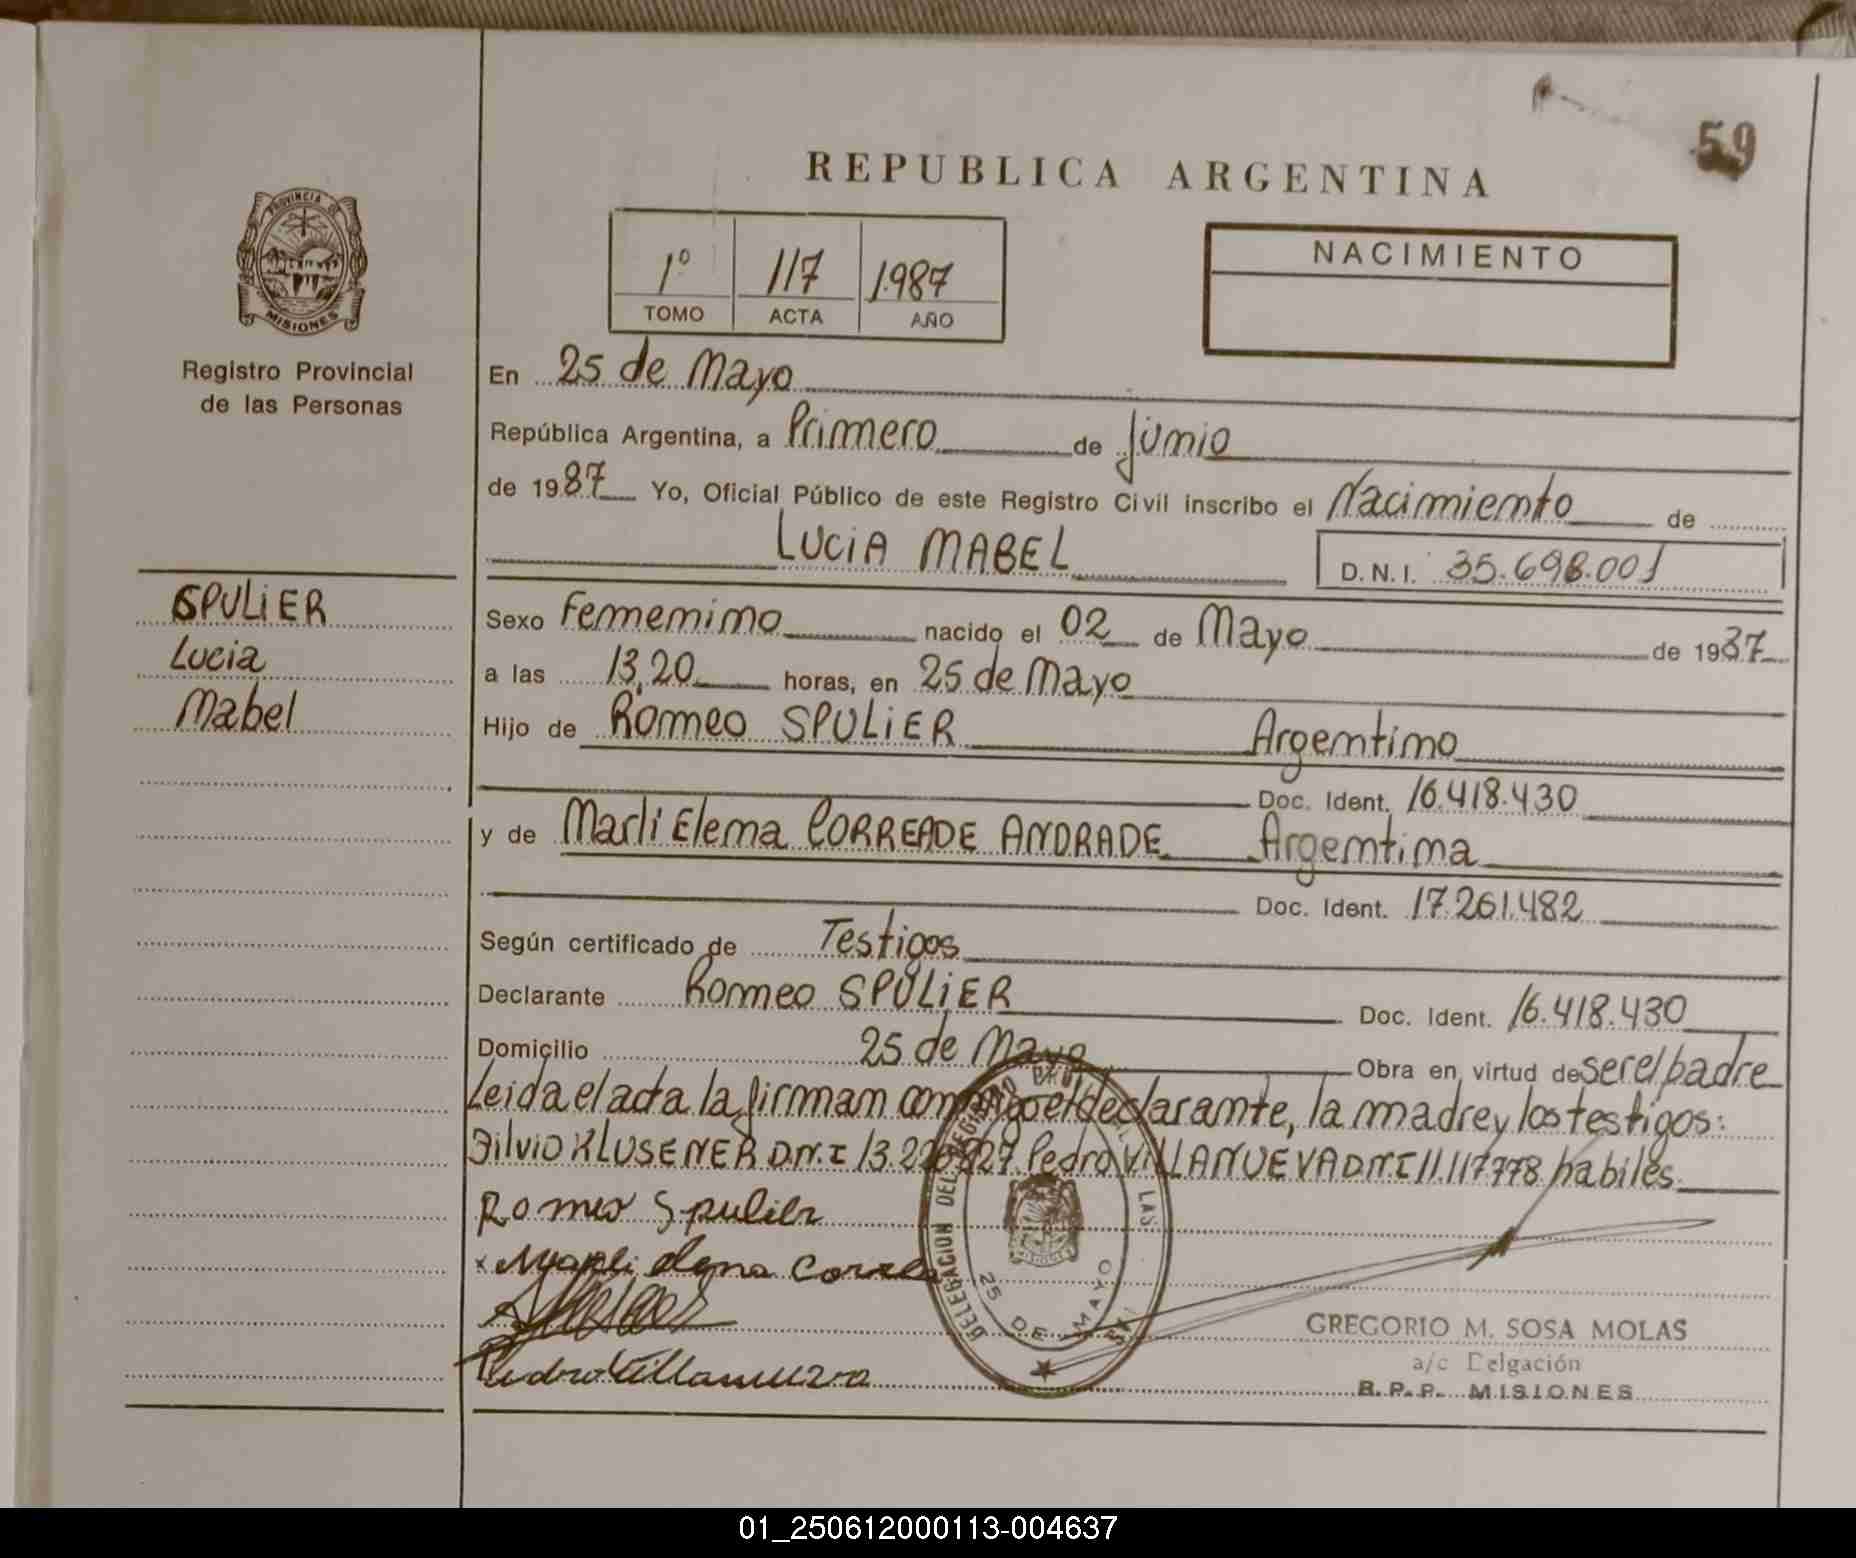 59
REPUBLICA ARGENTINA
PROVINCIA DE
MISIONES
1º 117 1.987
TOMO ACTA AÑO
NACIMIENTO
Registro Provincial
de las Personas
En 25 de Mayo
República Argentina, a Primero de Junio
de 1987 Yo, Oficial Público de este Registro Civil inscribo el Nacimiento de
LUCIA MABEL D.N.I. 35.698.001
SPULIER
Lucia
Mabel
Sexo Femenino nacido el 02 de Mayo de 1987
a las 13,20 horas, en 25 de Mayo
Hijo de Romeo SPULIER Argentino
Doc. Ident. 16.418.430
y de Marli Elena CORREADE ANDRADE Argentina
Doc. Ident. 17.261.482
Según certificado de Testigos
Declarante Romeo SPULIER Doc. Ident. 16.418.430
Domicilio 25 de Mayo Obra en virtud de ser el padre
Leida el acta la firman conmigo el declarante, la madre y los testigos:
Silvio KLUSENER D.N.I 13.226827 Pedro VILLANUEVA D.N.I 11.117778 habiles
Romeo Spulier
x Marli elena Correa
Pedro Villanueva
DELEGACION DEL REGISTRO LAS
25 DE MAYO
GREGORIO M. SOSA MOLAS
a/c Delgación
R.P.P. MISIONES
01_250612000113-004637